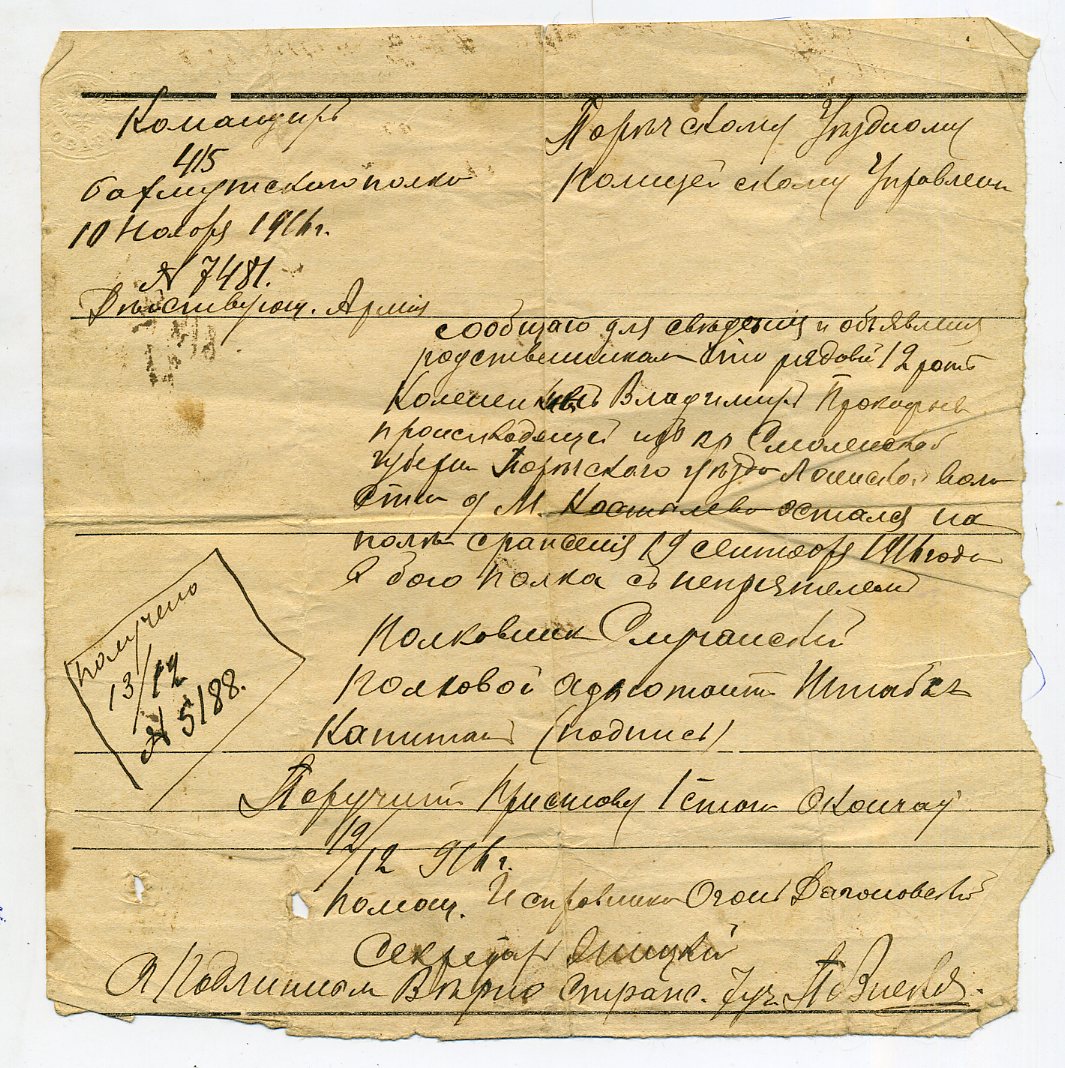 Командиръ
415
бахмутского полка
10 Ноября 1916 г.
№ 7481.
Действующ. Армія
Порѣчскому Уѣздному
Полицейскому Управлен
сообщаю для свѣденія и объявленія
родственникам что рядовой 12 роты
Владимиръ Прокофьев
происходящей изъ кр Смоленской
губерн Порѣчского уѣзда воло
сти д М. Костылево остался на
полѣ сраженія 19 сентября 1916 года
в бою полка съ непріятелемъ
Полковник Случанский
Полковой адъютантъ Штабсъ
Капитанъ (подпись)
получено
13/12
№ 5188.
Поручить Приставу 1 стан
12/12 916 г.
Помощ. Исправника
Секретарь
С подлинным Вѣрно